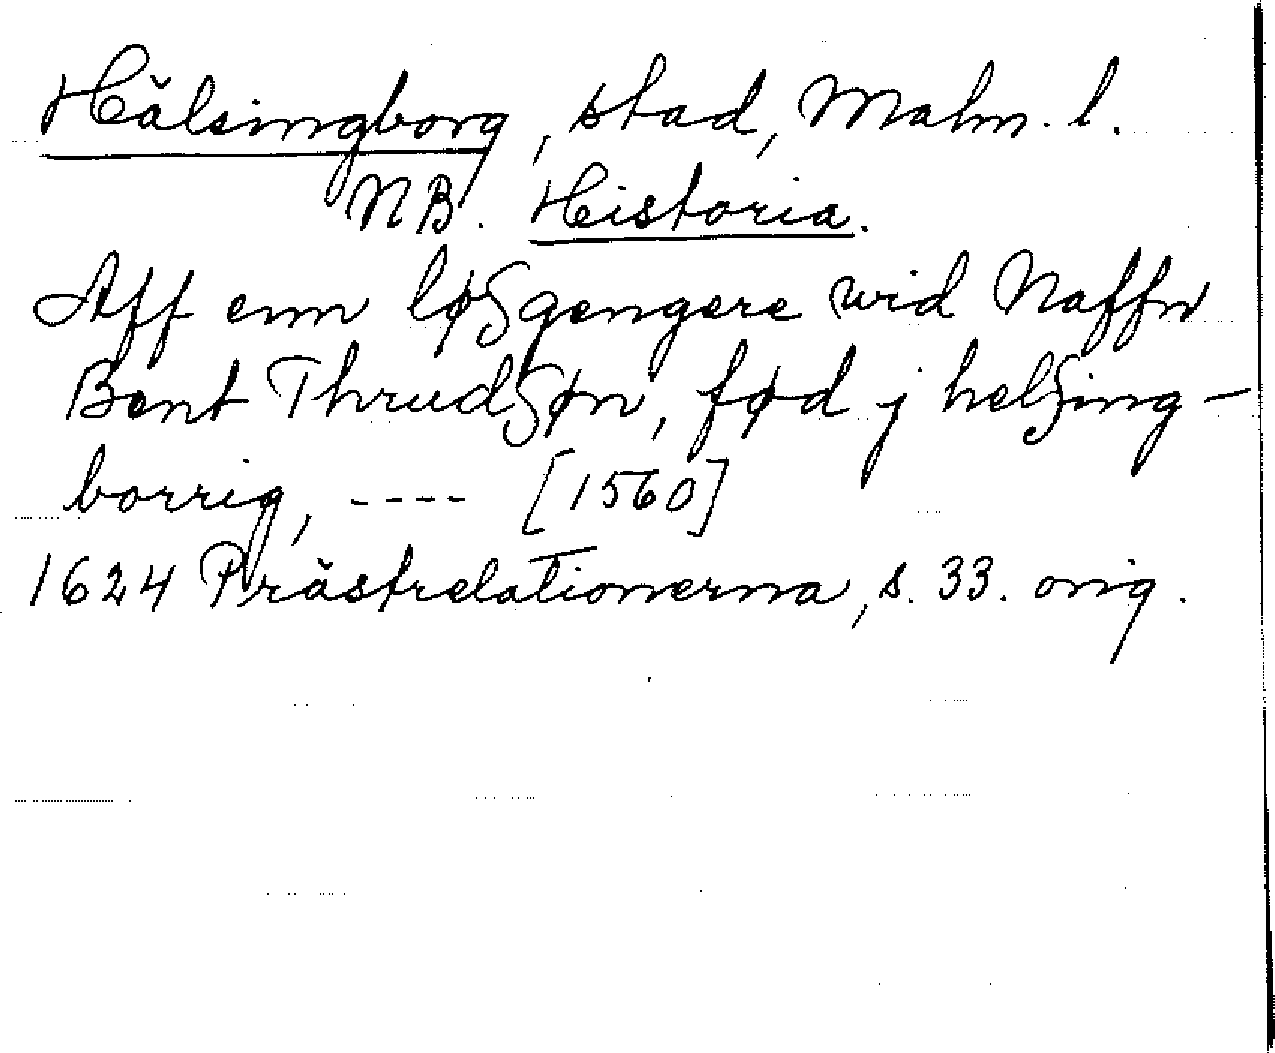 Hälsingborg, stad, Malm. l.
NB. Historia.
Aff enn løßgengere wid Naffn
Bent Thrudßøn, fød j helßing-
borrig, ---- [1560]
1624 Prästrelationerna, s. 33. orig.